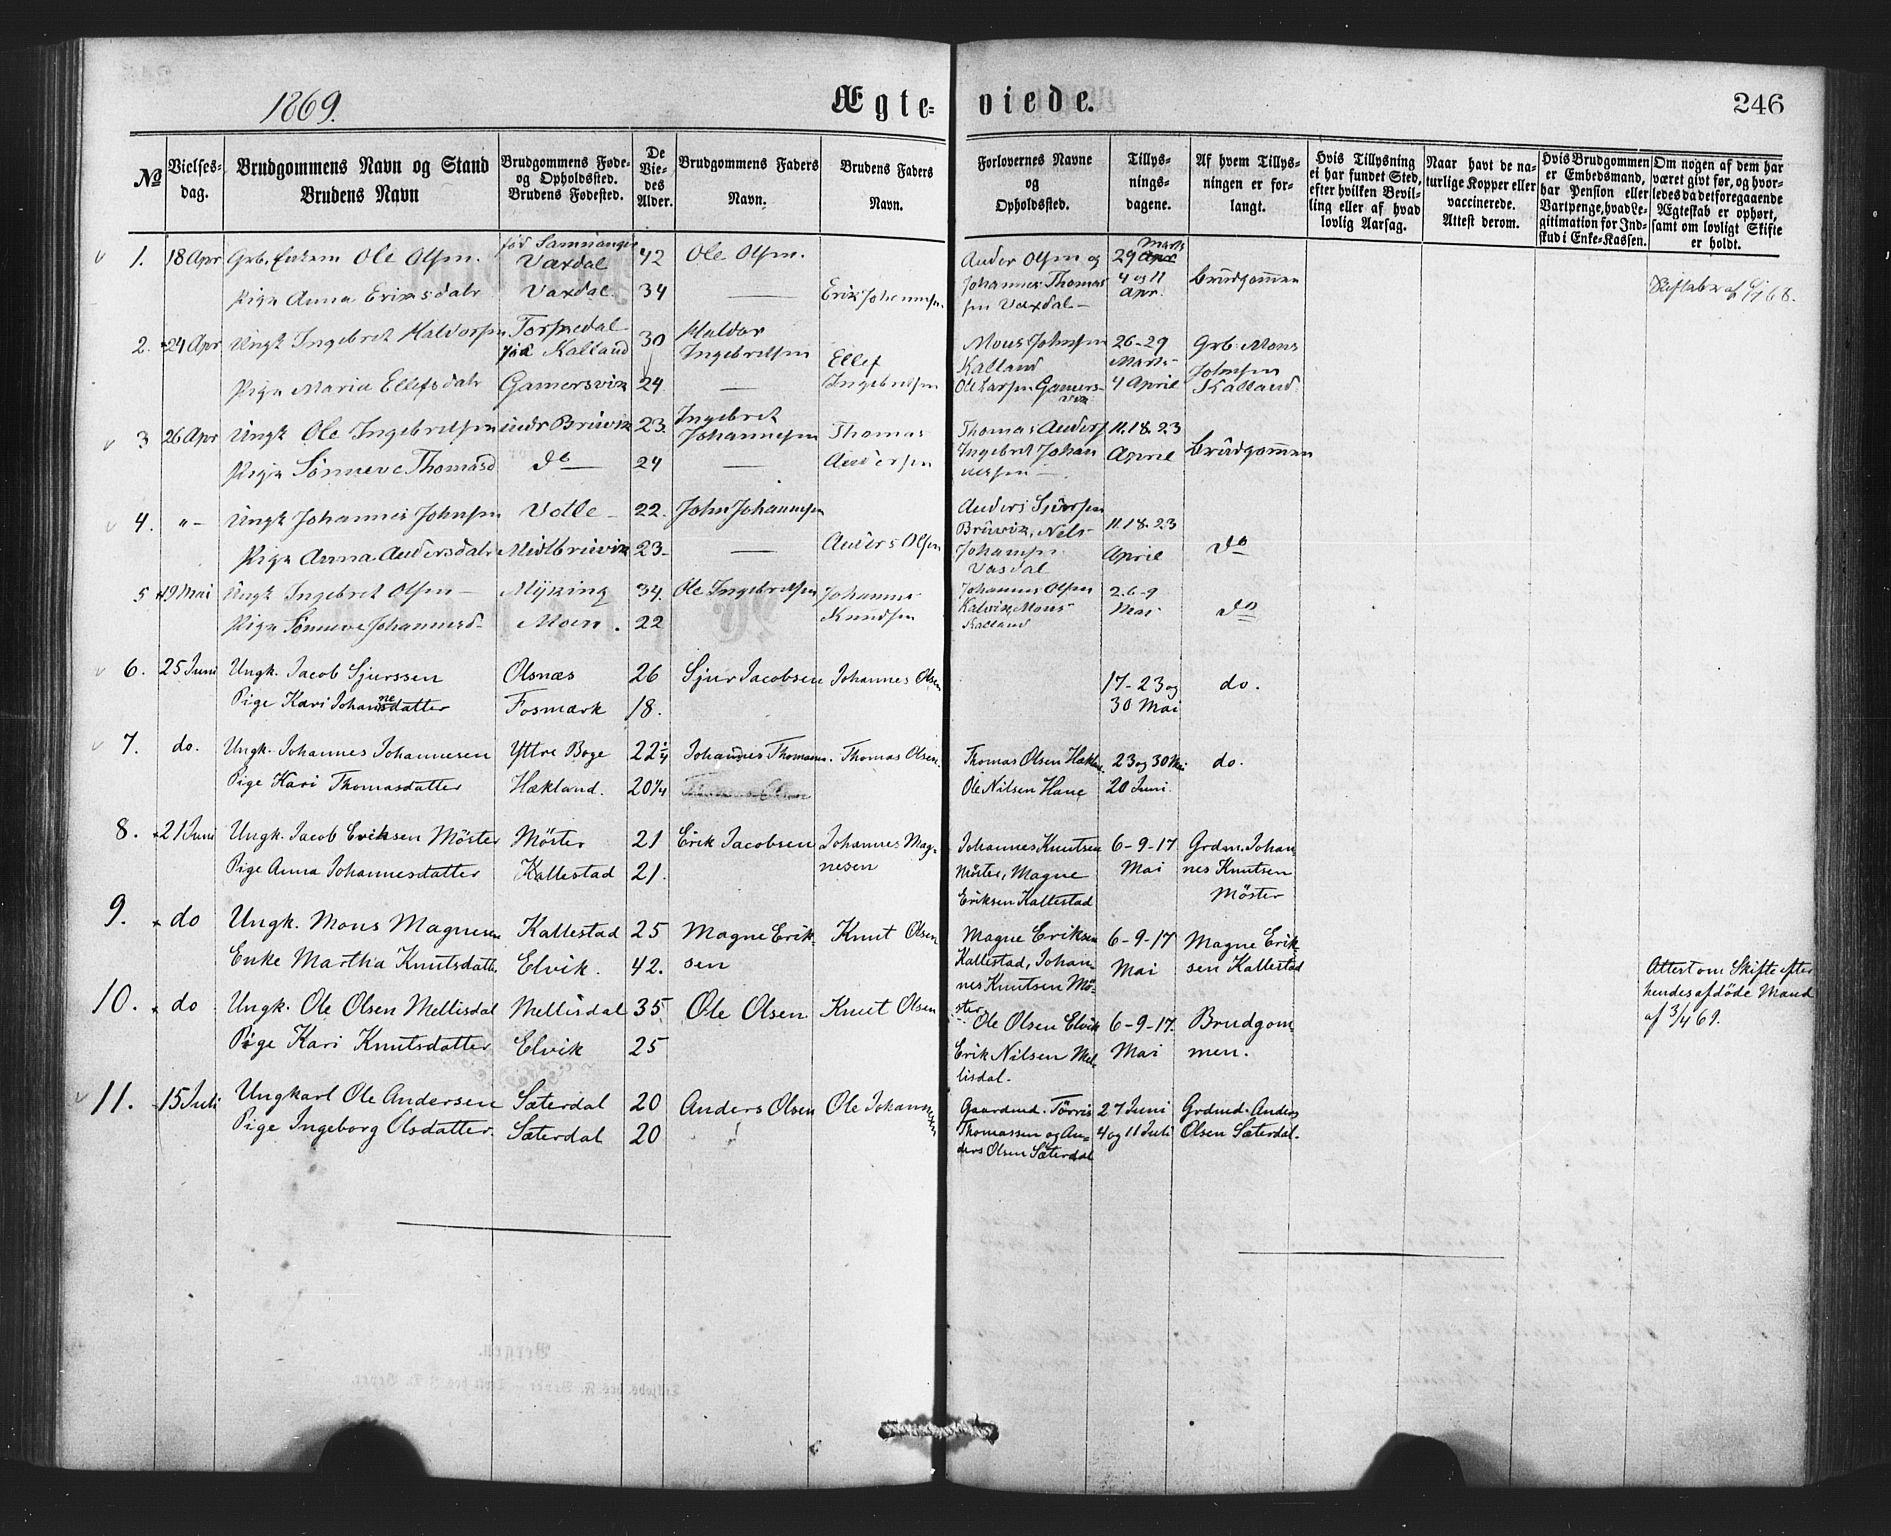 1869.
Ægte-
viede.
246
No
Vielses-
dag.
Brudgommens Navn og Stand
Brudens Navn
Brudgommens Føde-
og Opholdssted.
Brudens Fødested.
De
Vie-
des
Alder.
Brudgommens Faders
Navn.
Brudens Faders
Navn.
Forlovernes Navne
og
Opholdssted.
Tillys-
nings-
dagene.
Af hvem Tillys-
ningen er for-
langt.
Hvis Tillysning
ei har fundet Sted,
efter hvilken Bevil-
ling eller af hvad
lovlig Aarsag.
Naar havt de na-
turlige Kopper eller
vaccinerede.
Attest derom.
Hvis Brudgommen
er Embedsmand,
har Pension eller
Vartpenge, hvad Le-
gitimation for Ind-
skud i Enke-Kassen.
Om nogen af dem har
været givt før, og hvor-
ledes da det foregaaende
Ægteskab er ophørt,
samt om lovligt Skifte
er holdt.
1. 18 Apr Grb. Enkem Ole Olsen. født Samnanger 42 Ole Olsen. Anders Olsen og 29 Marts
Vaxdal
Pige Anna Eriksdatr Vaxdal. 34 — Erik Johannesen Johannes Thomas 4 og 11 Brudgommen
sen Vaxdal — Apr.
2. 24 Apr Ungk Ingebret Haldorsen Torsnedal 30 Haldor Mons Johnsen 26-29 Grb. Mons
født Kalland Ingebretsen Ellef Kalland Marts Johnsen
Pige Maria Ellefsdatr Gamersvik 24 — Ingebretsen Ole Larsen Gamers- 4 April Kalland
vik
3 26 Apr Ungk Ole Ingebretsen indr Bruvik 23. Ingebret Thomas Thomas Anders 11.18.23
Johannesen
Pige Sønneve Thomasd do 24 — Andersen Ingebret Johan April Brudgommen
nesen —
4. "- Ungk Johannes Johnsen Vetle — 22. John Johannesen Anders Sjursen
Bruvik, Nils 11.18.23
Pige Anna Andersdatr Midtbruvik 23- — Anders Olsen April do
5 19 Mai Ungk Ingebret Olsen — Myking 34. Ole Ingebretsen Johannes Johannes Olsen 2.6-9
Pige Sønneve Johannesd- Moen. 22 Knudsen Mons Mai do
Kalland
6. 25 Juni Ungk. Jacob Sjurssen Olsnæs 26 Sjur Jacobsen Johannes Olsen 17-23 og do.
Pige Kari Johannesdatter Fosmark 18. 30 Mai
7. do. Ungk. Johannes Johannesen Yttre Boge 22¼ Johannes Thomassen. Thomas Olsen. Thomas Olsen Hækland. 23 og 30 Mai do.
Pige Kari Thomasdatter Hækland. 20¼ Ole Nilsen Hane 20 Juni.
8. 21 Juni Ungk. Jacob Eriksen Møster Møster 21 Erik Jacobsen Johannes Mag- Johannes Knutsen 6-9-17 Grdm. Johan-
Pige Anna Johannesdatter Kallestad 21. nesen Møster, Magne Mai nes Knutsen
Eriksen Kallestad Møster
9. do Ungk. Mons Magnesen Kallestad 25 Magne Erik- Knut Olsen Magne Eriksen 6-9-17 Magne Erik-
Enke Martha Knutsdatt. Elvik. 42. sen Kallestad, Johan- Mai sen Kallestad Attest om Skifte efter
nes Knutsen Mø- hendes afdøde Mand
ster af 3/4 69.
10. do Ungk. Ole Olsen Mellisdal Mellisdal 35 Ole Olsen Knut Olsen Ole Olsen Elvik 6-9-17. Brudgom-
Pige Kari Knutsdatter Elvik 25 Erik Nilsen Mel- Mai men.
lisdal.
11. 15 Juli Ungkarl Ole Andersen Sæterdal 20 Anders Olsen Ole Johannesen Gaardmd. Tørris 27 Juni Grdmd. Anders
Pige Ingeborg Olsdatter. Sæterdal 20 Thomassen og An- 4 og 11 Juli Olsen Sæterdal.
ders Olsen Sæterdal